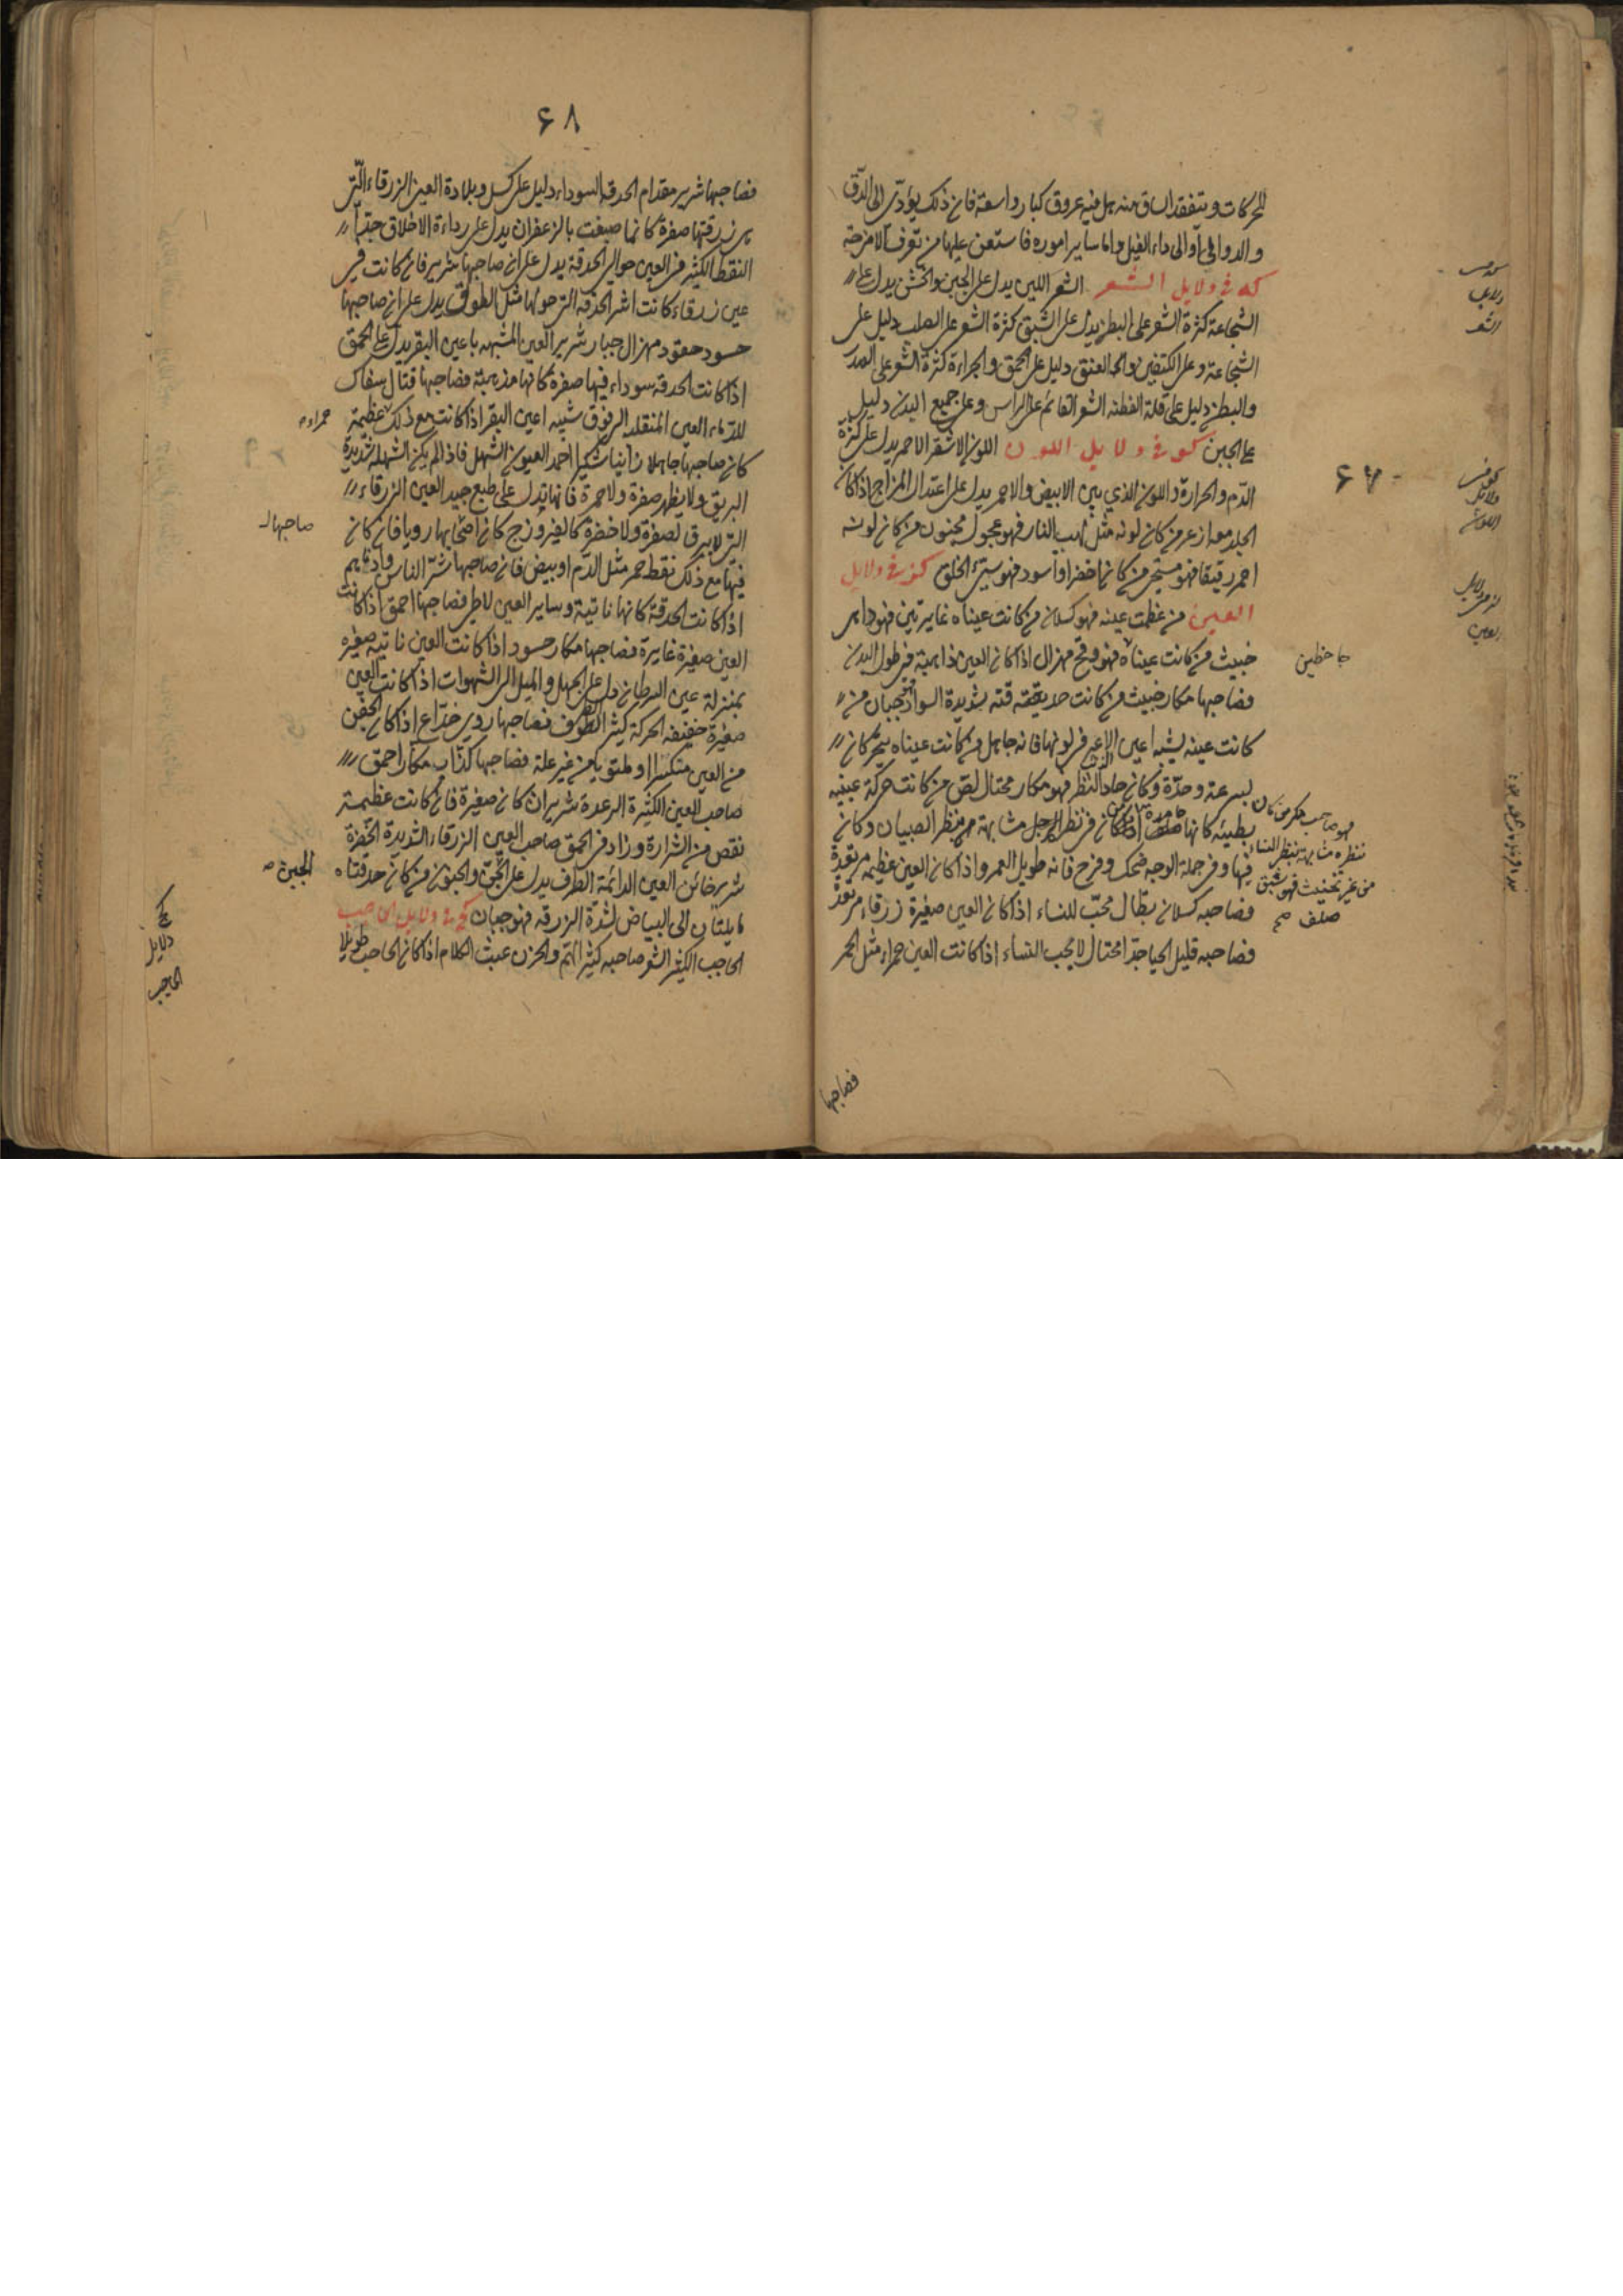 للحركات ويتفقد الساق منه هل فيه عروق كبار واسعة فان ذلك يؤدى الى الدق
والدوالى او الى داء الفيل واما ساير اموره فاستعن عليها من تعرف الامزجة
كه فى دلايل الشعر الشعر اللين يدل على الجبن والخشن يدل على
الشجاعة كثرة الشعر على البطن يدل على الشبق كثرة الشعر على الصلب دليل على
الشجاعة وعلى الكتفين والعنق دليل على الحمق والجراءة كثرة الشعر على الصدر
والبطن دليل على قلة الفطنه الشعر القائم على الراس وعلى جميع البدن دليل
على الجبن كو فى دلايل اللون اللون الاشقر الاحمر يدل على كثرة
الدم والحرارة واللون الذي بين الابيض والاحمر يدل على اعتدال المزاج اذا كان
الجلد معه ازعر من كان لونه مثل لهب النار فهو عجول مجنون من كان لونه
احمر رقيقا فهو مستحى من كان اخضر او اسود فهو سيئ الخلق كز فى دلايل
العين من عظمت عينه فهو كسلان من كانت عيناه غايرتين فهو داهى
خبيث من كانت عيناه فهو وقح مهزال اذا كان العين ذاهبة فى طول البدن
جاحظين
فصاحبها مكار خبيث من كانت حديقته شديدة السواد فهو جبان من
كانت عينه يشبه اعين الاعنز فى لونها فانه جاهل من كانت عيناه يتحركان
بسرعة وحدة وكان حاد النظر فهو مكار محتال لص من كانت حركة عينيه
بطيئه كانها جامدة اذا كان فى نظر الرجل مشابهة بنظر الصبيان وكان
فهو صاحب مكر من كان
نظره مشابهة بنظر النساء
من غير تخنيث فهو شبق
صلف صح
فيها وفى جملة الوجه ضحك وفرح فانه طويل العمر واذا كان العين عظيمه مرتعدة
فصاحبه كسلان بطال محب للنساء اذا كان العين صغيرة زرقاء مرتعدة
فصاحبه قليل الحيا جدا محتال لا يحب النساء اذا كانت العين حمراء مثل الجمر
فصاحبها
دلايل
الشعر
دلايل
اللون
دلايل
العين
۶۸
فصاحبها شرير مقدام الحدقة السوداء دليل على كسل وبلادة العين الزرقاء التى
فى زرقتها صفرة كانما صبغت بالزعفران يدل على رداءة الاخلاق جدا
النقط الكثير فى العين حوالى الحدقة يدل على ان صاحبها شرير فان كانت فى
عين زرقاء كانت اشر الحدقه التى حولها مثل الطوق يدل على ان صاحبها
حسود حقود مهزال جبار شرير العين المشبهه باعين البقر يدل على الحمق
اذا كانت الحدقه سوداء فيها صفرة كانها مذهبة فصاحبها قتال سفاك
للدماء العين المنقلبه الى فوق شبيه اعين البقر اذا كانت مع ذلك عظيمة
حمراء
كان صاحبها جاهلا زانيا سكيرا احمد العيون الشهل فاذا لم يكن الشهلة شديدة
البريق ولا يظهر صفرة ولا حمرة فانها تدل على طبع جيد العين الزرقاء
التى لا يبرق لصفرة ولا خضرة كالفيروزج كان اصحابها رديا فان كان
صاحبها
فيها مع ذلك نقط حمر مثل الدم او بيض فان صاحبها شر الناس وادهاهم
اذا كانت الحدقة كانها ناتية وساير العين لاطى فصاحبها احمق اذا كانت
العين صغيرة غايرة فصاحبها مكار حسود اذا كانت العين ناتيه صغيره
بمنزلة عين السرطان دل على الجهل والميل الى الشهوات اذا كانت العين
صغيرة خفيفه الحركة كثير الطرف فصاحبها ردى خداع اذا كان الجفن
من العين متكسرا او ملتويا من غير علة فصاحبها كذاب مكار احمق
صاحب العين الكثيرة الرعدة شرير ان كان صغيرة فان كانت عظيمة
نقص من الشرارة وزاد فى الحمق صاحب العين الزرقاء الشديدة الخضرة
شرير خائن العين الدائمة الطرف يدل على الجبن والجنون من كان حدقتاه
الجبن
مايلتان الى البياض لشدة الزرقه فهو جبان كح فى دلايل الحاجب
الحاجب الكثير الشعر صاحبه كثير الهم والحزن غث الكلام اذا كان الحاجب طويلا
كح
دلايل
الحاجب